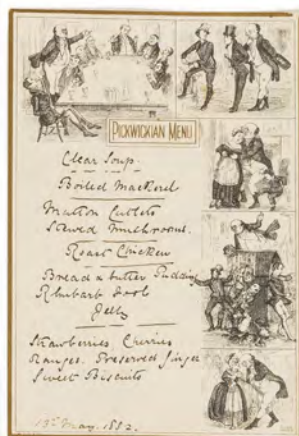 PICKWICKIAN MENU
Clear Soup.
Boiled Mackerel
Mutton Cutlets
Stewed Mushrooms.
Roast Chicken
Bread & butter Pudding
Rhubarb Fool
Jelly
Strawberries Cherries
Oranges. Preserved Ginger
Sweet Biscuits
13th May. 1882.